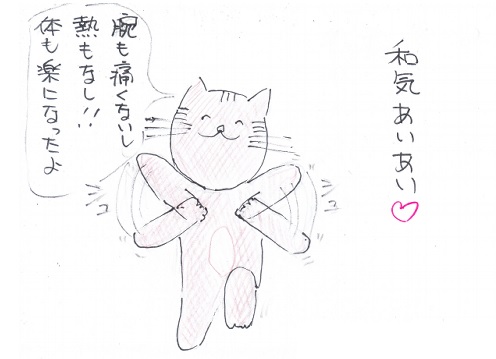 和気あいあい♡
腕も痛くないし
熱もなし!!
体も楽になったよ
コ
コ